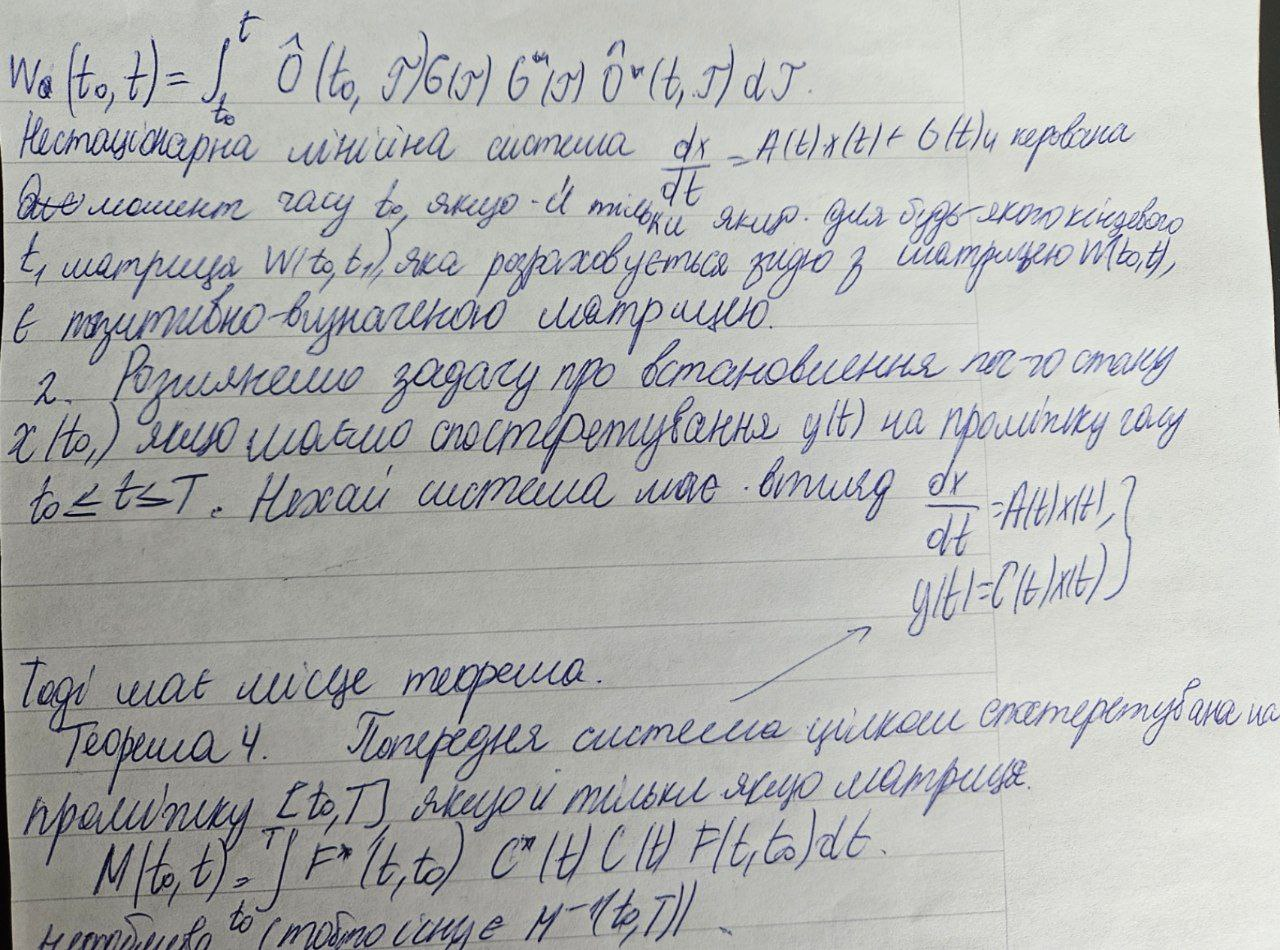 Wa(t₀, t) = ∫ₜ₀ᵗ Ô(t₀, 𝒯)G(𝒯) G*(𝒯) Ô*(t, 𝒯) d𝒯.
Нестаціонарна лінійна система dx/dt = A(t)x(t) + G(t)u керована
момент часу t₀, якщо й тільки якщо для будь-якого кінцевого
t₁ матриця W(t₀, t₁), яка розраховується згідно з матрицею W(t₀,t),
є позитивно-визначеною матрицею.
2. Розглянемо задачу про встановлення поч-го стану
x(t₀,) якщо маємо спостережування y(t) на проміжку часу
t₀ ≤ t ≤ T. Нехай система має вигляд dx/dt = A(t)x(t),
y(t)=C(t)x(t) }
Тоді має місце теорема.
Теорема 4. Попередня система цілком спостережувана на
проміжку [t₀,T] якщо й тільки якщо матриця.
M(t₀,t) = ∫ₜ₀ᵀ F*(t,t₀) C*(t) C(t) F(t,t₀)dt.
(тобто існує M⁻¹(t₀,T))